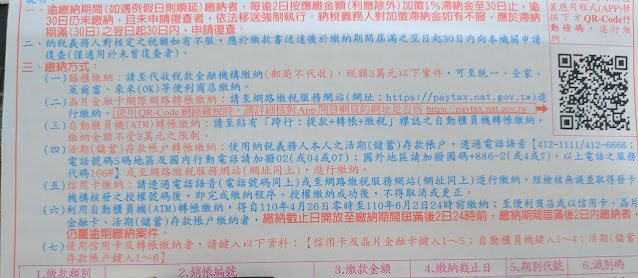 一、逾繳納期間(如遇例假日則順延)繳納者,每逾2日按應繳金額(利息除外)加徵1%滯納金至30日止,逾
30日仍未繳納,且未申請復查者,依法移送強制執行。納稅義務人對加徵滯納金如有不服,應於滯納
期滿(30日)之翌日起30日內,申請復查。
二、納稅義務人對核定之稅額如有不服,應於繳款書送達後於繳納期間屆滿之翌日起30日內向本機關申請
復查(僅適用於未曾復查者)。
三、繳納方式:
(一)臨櫃繳納:請至代收稅款金融機構繳納(郵局不代收),稅額3萬元以下案件,可至統一、全家、
萊爾富、來來(OK)等便利商店繳納。
(二)晶片金融卡網際網路轉帳繳納:請至網路繳稅服務網站(網址:https://paytax.nat.gov.tw)進
行繳納。使用QR-Code網路繳稅時,請詳細核對App開啓網頁的網址是否為 https://paytax.nat.gov.tw
(三)自動櫃員機(ATM)轉帳繳納:請至貼有「跨行:提款+轉帳+繳稅」標誌之自動櫃員機轉帳繳納,
繳納金額不受3萬元之限制。
(四)活期(儲蓄)存款帳戶轉帳繳納:使用納稅義務人本人之活期(儲蓄)存款帳戶,透過電話語音【412-1111/412-6666;
電話號碼5碼地區及國內行動電話請加撥02(或04或07);國外地區請加撥國碼+886-2(4或7),以上電話之服務
代碼166#】或至網路繳稅服務網站(網址同上),進行繳納。
(五)信用卡繳納:請透過電話語音(電話號碼同上)或至網路繳稅服務網站(網址同上)進行繳納,經檢核無誤並取得發卡
機構核發之授權號碼後,即完成繳納程序。授權繳納成功後,不得取消或更正。
(六)利用自動櫃員機(ATM)轉帳繳納,得自110年4月26日零時至110年6月2日24時前繳納;至便利商店或以信用卡、晶片
金融卡、活期(儲蓄)存款帳戶繳納者,繳納截止日開放至繳納期間屆滿後2日24時前,繳納期間屆滿後2日內繳納者,
仍屬逾期繳納案件。
(七)使用信用卡及轉帳繳納者,請鍵入以下資料:【信用卡及晶片金融卡鍵入1~5;自動櫃員機鍵入1~4;活期(儲蓄)存款
帳戶鍵入1~6】
置應用程式(APP)掃
描下方QR-Code行
動條碼,進行繳
納。
1.繳款類別 2.銷帳編號 3.繳款金額 4.繳納截止日 5.期別代號 6.識別碼